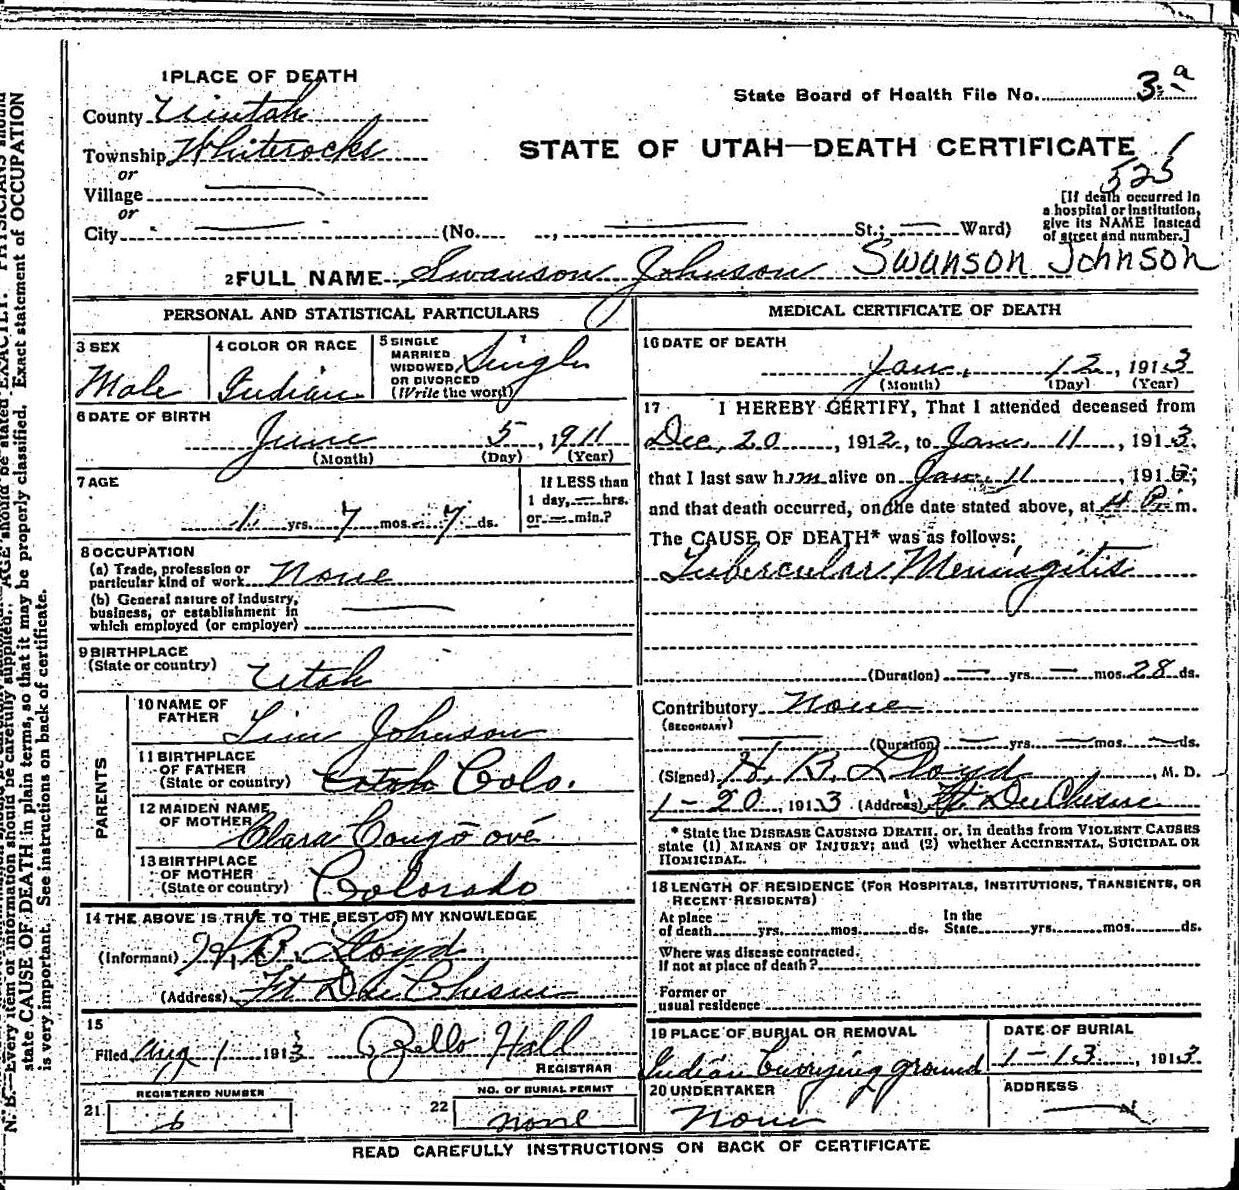 1 PLACE OF DEATH
County Uintah
State Board of Health File No. 3 a
Township Whiterocks
STATE OF UTAH—DEATH CERTIFICATE
or
525
Village
[If death occurred in
a hospital or institution,
give its NAME instead
of street and number.]
or
City (No. , St.; Ward)
2 FULL NAME Swanson Johnson Swanson Johnson
PERSONAL AND STATISTICAL PARTICULARS
3 SEX
Male
4 COLOR OR RACE
Indian
5 SINGLE
MARRIED
WIDOWED
OR DIVORCED
(Write the word)
Single
6 DATE OF BIRTH
June 5, 1911
(Month) (Day) (Year)
7 AGE
1 yrs. 7 mos. 7 ds.
If LESS than
1 day, — hrs.
or — min.?
8 OCCUPATION
(a) Trade, profession or
particular kind of work None
(b) General nature of industry,
business, or establishment in
which employed (or employer)
9 BIRTHPLACE
(State or country)
Utah
PARENTS
10 NAME OF
FATHER
Jim Johnson
11 BIRTHPLACE
OF FATHER
(State or country)
Utah Colo.
12 MAIDEN NAME
OF MOTHER
Clara
13 BIRTHPLACE
OF MOTHER
(State or country)
Colorado
14 THE ABOVE IS TRUE TO THE BEST OF MY KNOWLEDGE
(Informant) H. B. Lloyd
(Address) Ft DuChesne
15
Filed Aug 1 1913 Zello Hall
REGISTRAR
REGISTERED NUMBER
21 6
NO. OF BURIAL PERMIT
22 none
MEDICAL CERTIFICATE OF DEATH
16 DATE OF DEATH
Jan. 12, 1913
(Month) (Day) (Year)
17 I HEREBY CERTIFY, That I attended deceased from
Dec, 20, 1912, to Jan. 11, 1913.
that I last saw him alive on Jan. 11, 1913;
and that death occurred, on the date stated above, at 4 P. m.
The CAUSE OF DEATH* was as follows:
Tubercular Meningitis
(Duration) — yrs. — mos. 28 ds.
Contributory None
(SECONDARY)
(Duration) — yrs. — mos. — ds.
(Signed) H. B. Lloyd, M. D.
1-20, 1913 (Address) Ft. DuChesne
* State the DISEASE CAUSING DEATH, or, in deaths from VIOLENT CAUSES
state (1) MEANS OF INJURY; and (2) whether ACCIDENTAL, SUICIDAL OR
HOMICIDAL.
18 LENGTH OF RESIDENCE (FOR HOSPITALS, INSTITUTIONS, TRANSIENTS, OR
RECENT RESIDENTS)
At place
of death yrs. mos. ds.
In the
State yrs. mos. ds.
Where was disease contracted.
If not at place of death?
Former or
usual residence
19 PLACE OF BURIAL OR REMOVAL
Indian burrying ground
DATE OF BURIAL
1-13, 1913
20 UNDERTAKER
None
ADDRESS
READ CAREFULLY INSTRUCTIONS ON BACK OF CERTIFICATE
N. B.—Every item of information should be carefully supplied. AGE should be stated EXACTLY. PHYSICIANS should
state CAUSE OF DEATH in plain terms, so that it may be properly classified. Exact statement of OCCUPATION
is very important. See instructions on back of certificate.